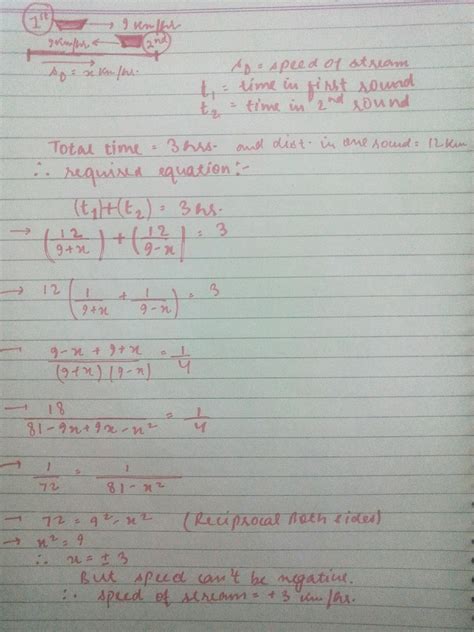 1st → 9 km/hr.
9km/hr. ← 2nd
s₀ = x km/hr. →
s₀ = speed of stream
t₁ = time in first round
t₂ = time in 2nd round
Total time = 3 hrs. and dist. in one round = 12 km
∴ required equation :-
(t₁) + (t₂) = 3 hs.
→ (12/(9+x)) + (12/(9-x)) = 3
→ 12 (1/(9+x) + 1/(9-x)) = 3
→ (9-x + 9+x)/((9+x)(9-x)) = 1/4
→ 18/(81-9x+9x-x²) = 1/4
→ 1/72 = 1/(81-x²)
→ 72 = 9²-x² (Reciprocal Both sides)
→ x² = 9
∴ x = ± 3
But speed can't be negative.
∴ speed of stream = +3 km/hr.